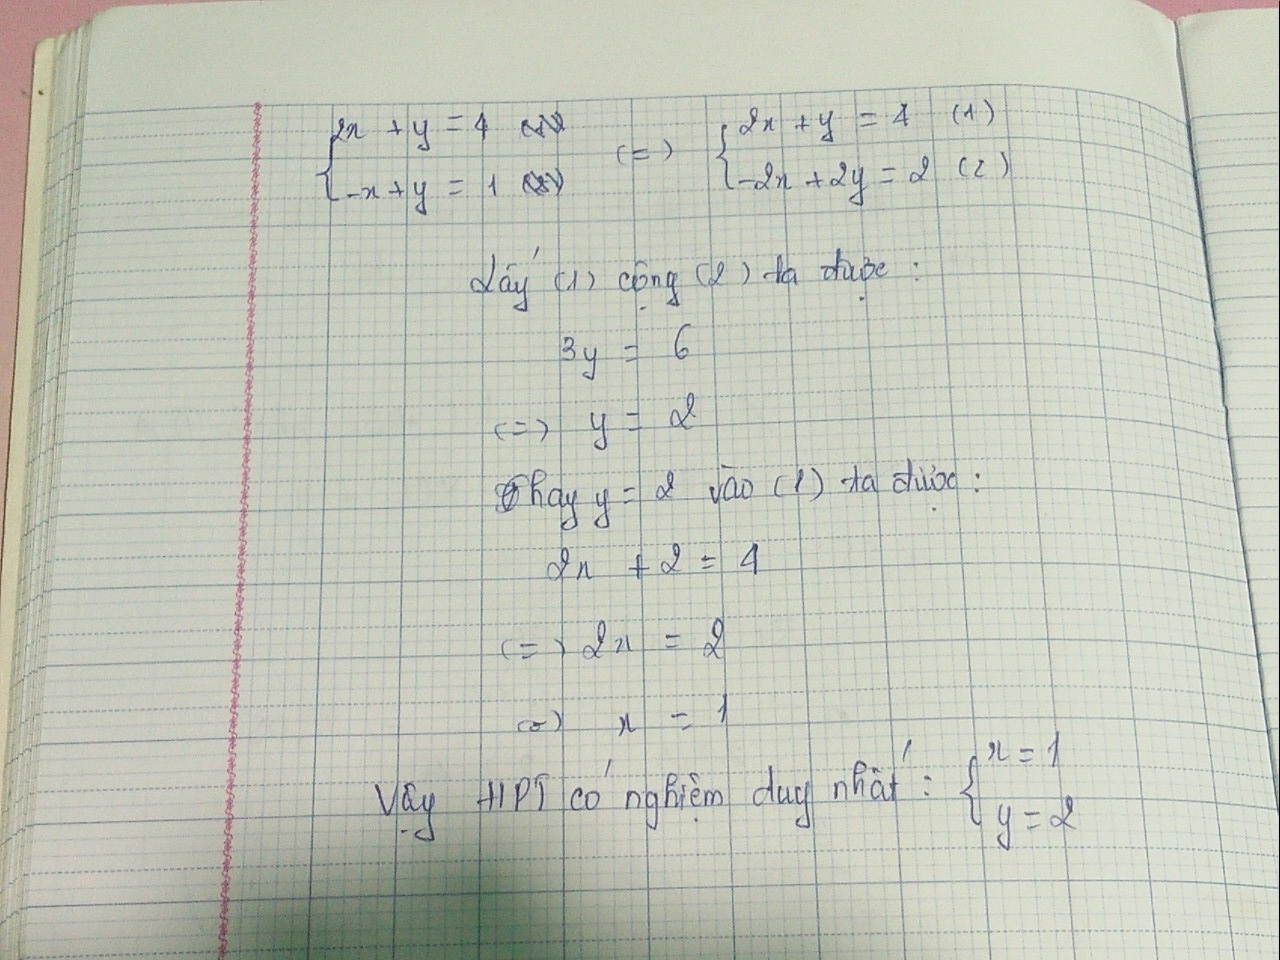 2x + y = 4 (⇔) 2x + y = 4 (1)
-x + y = 1 -2x + 2y = 2 (2)
Lấy (1) cộng (2) ta được :
3y = 6
(=) y = 2
Thay y = 2 vào (1) ta được :
2x + 2 = 4
(=) 2x = 2
(=) x = 1
Vậy HPT có nghiệm duy nhất : { x = 1
y = 2